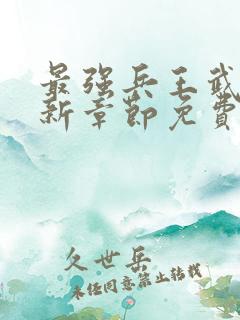 最强兵王武
新章节免费
久世岳
未经同意禁止转载